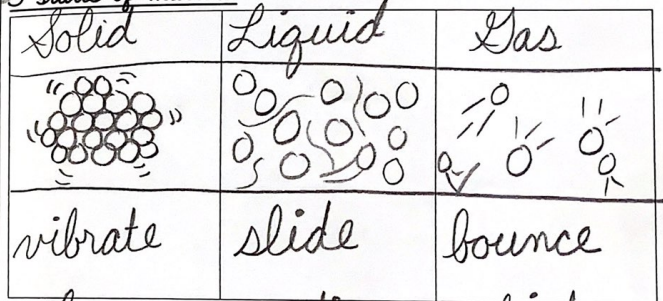 Solid Liquid Gas
vibrate slide bounce